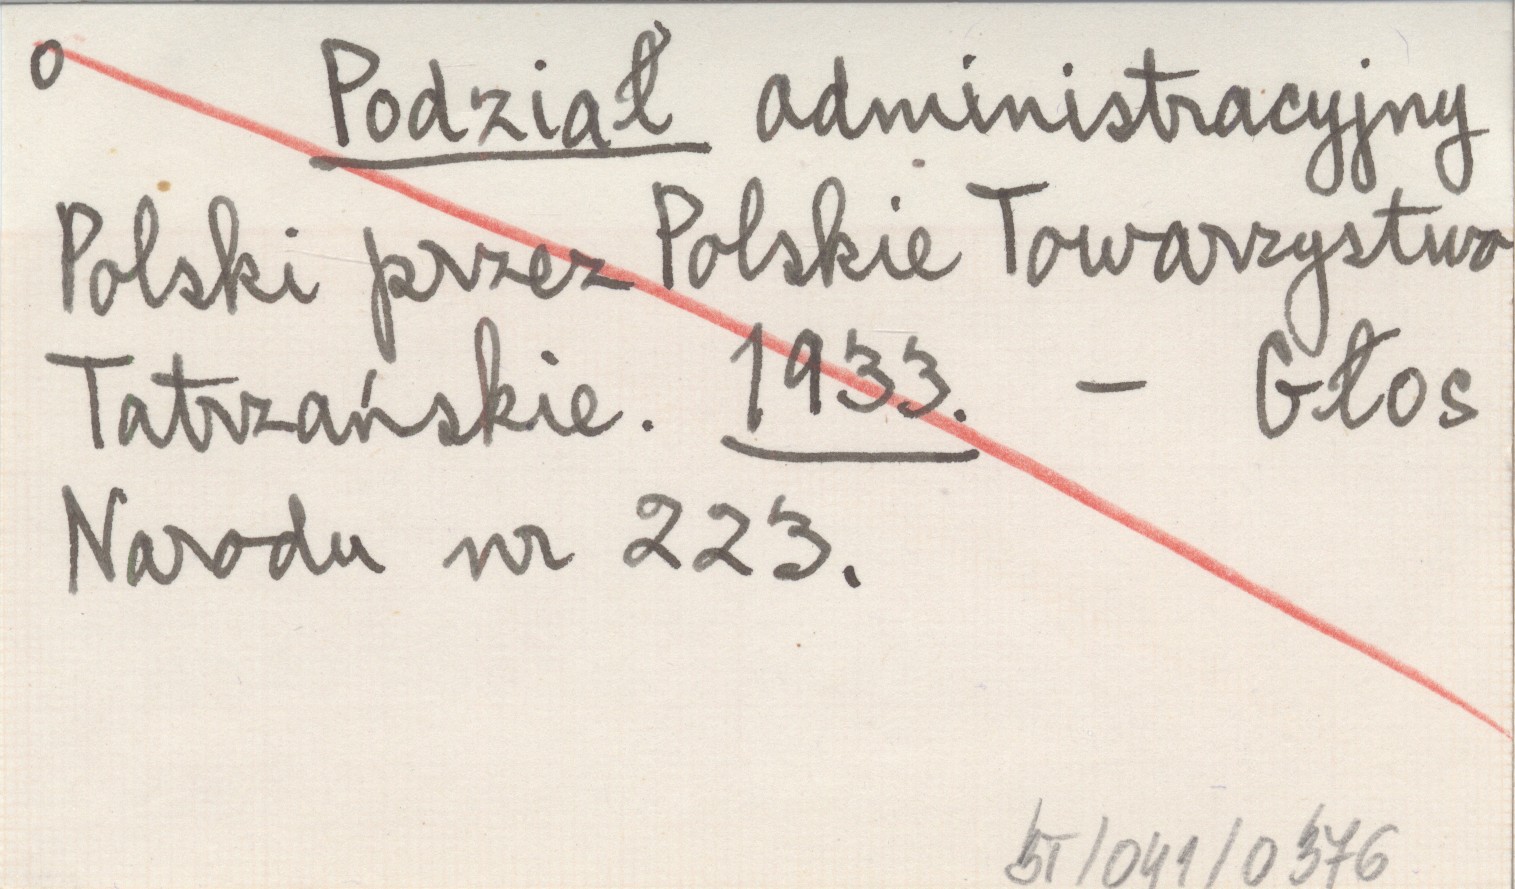 o Podział administracyjny
Polski przez Polskie Towarzystwo
Tatrzańskie. 1933. – Głos
Narodu nr 223.
BT/041/0376